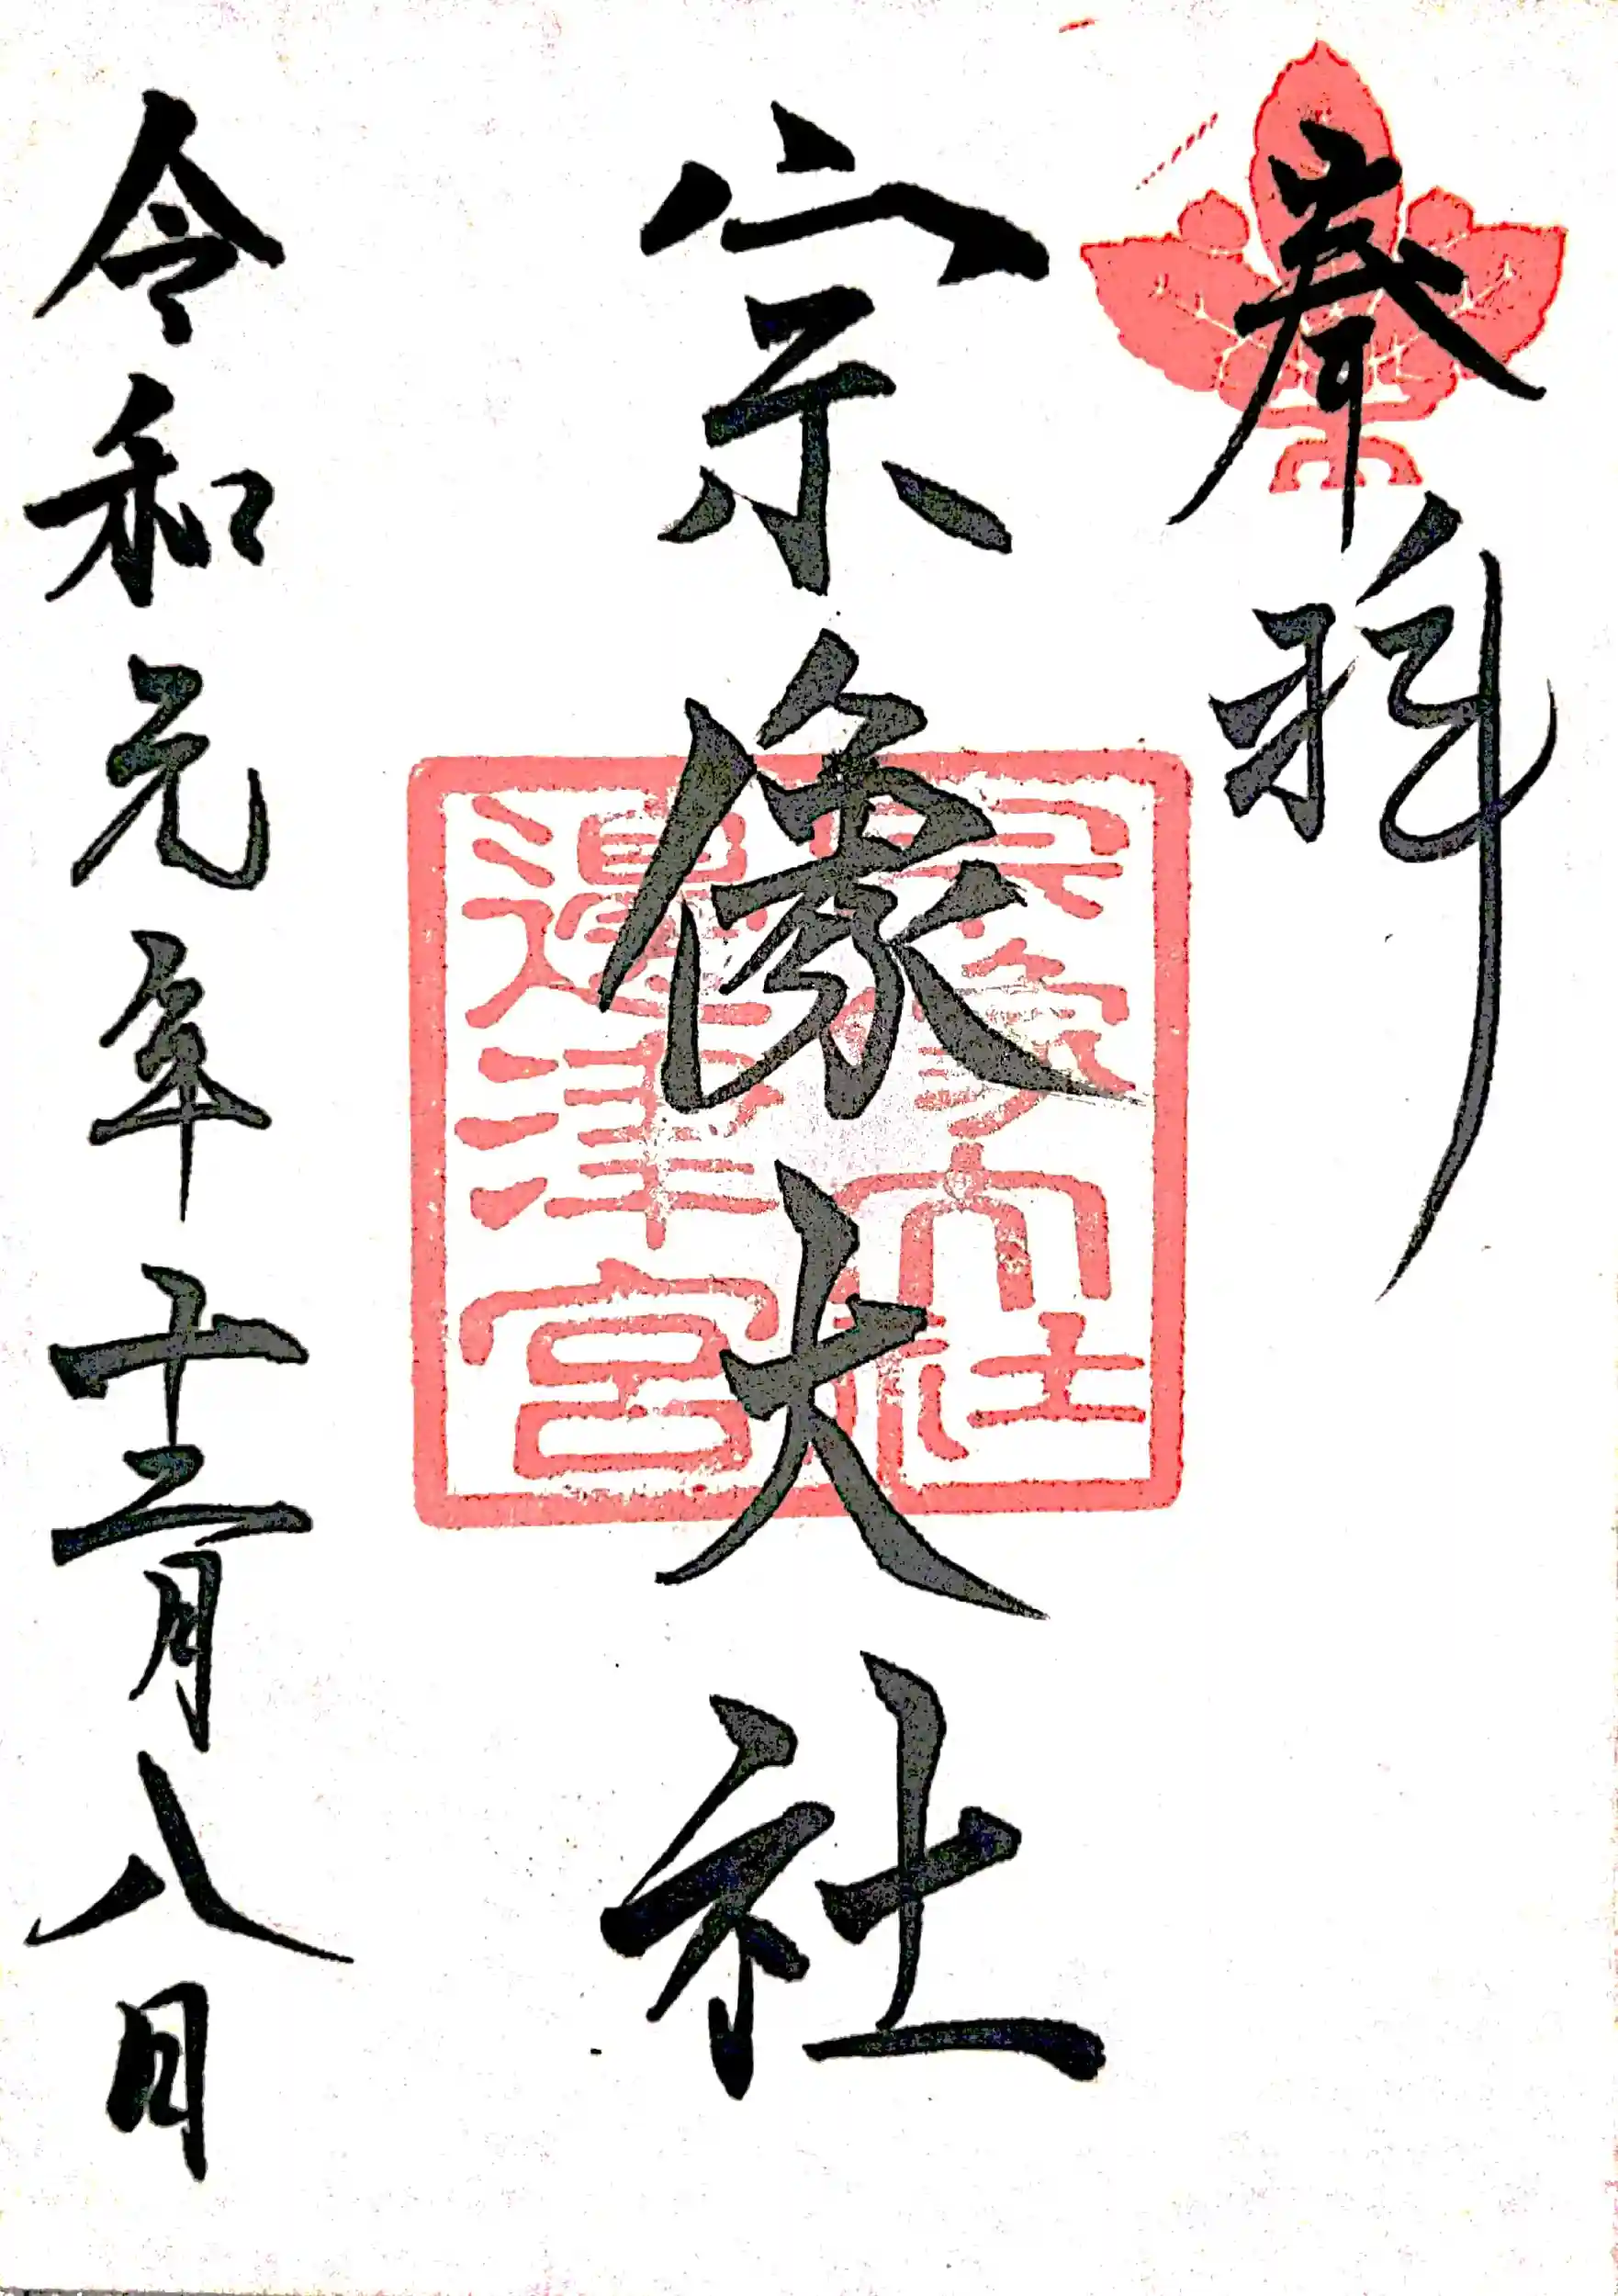 奉拝
宗像大社
宗像大社
邊津宮
令和元年十二月八日